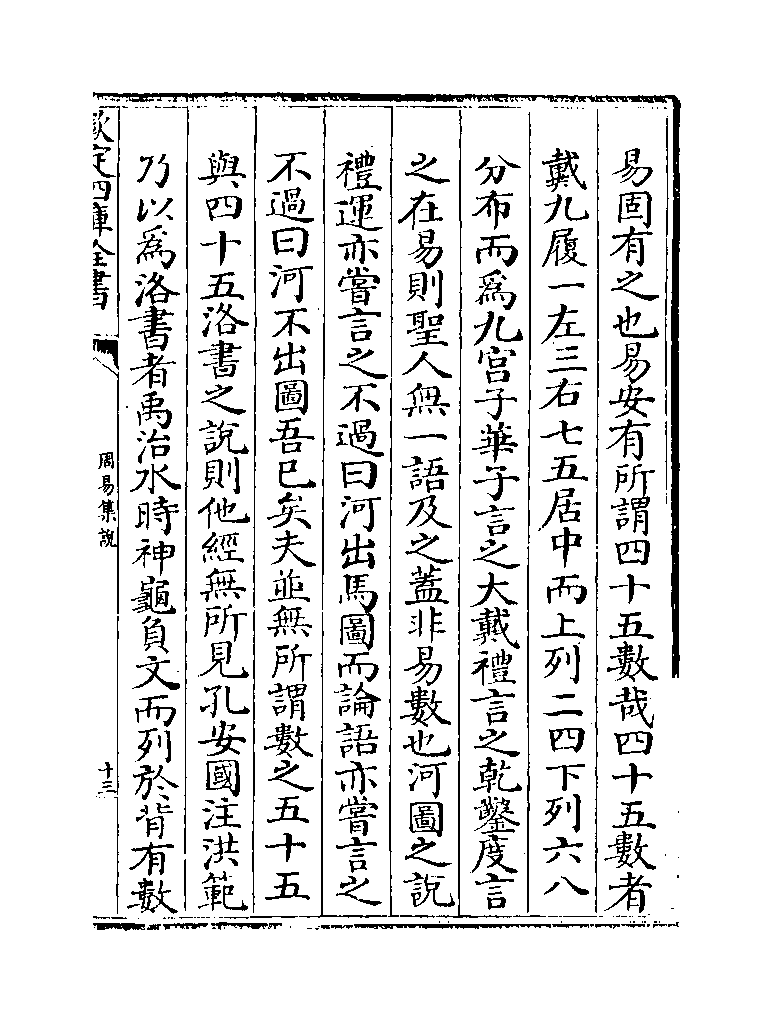 易固有之也易安有所謂四十五數哉四十五數者
戴九履一左三右七五居中而上列二四下列六八
分布而爲九宫子華子言之大戴禮言之乾鑿度言
之在易則聖人無一語及之蓋非易數也河圖之說
禮運亦嘗言之不過曰河出馬圖而論語亦嘗言之
不過曰河不出圖吾已矣夫並無所謂數之五十五
與四十五洛書之說則他經無所見孔安國注洪範
乃以爲洛書者禹治水時神龜負文而列於背有數
欽定四庫全書
周易集說
十三